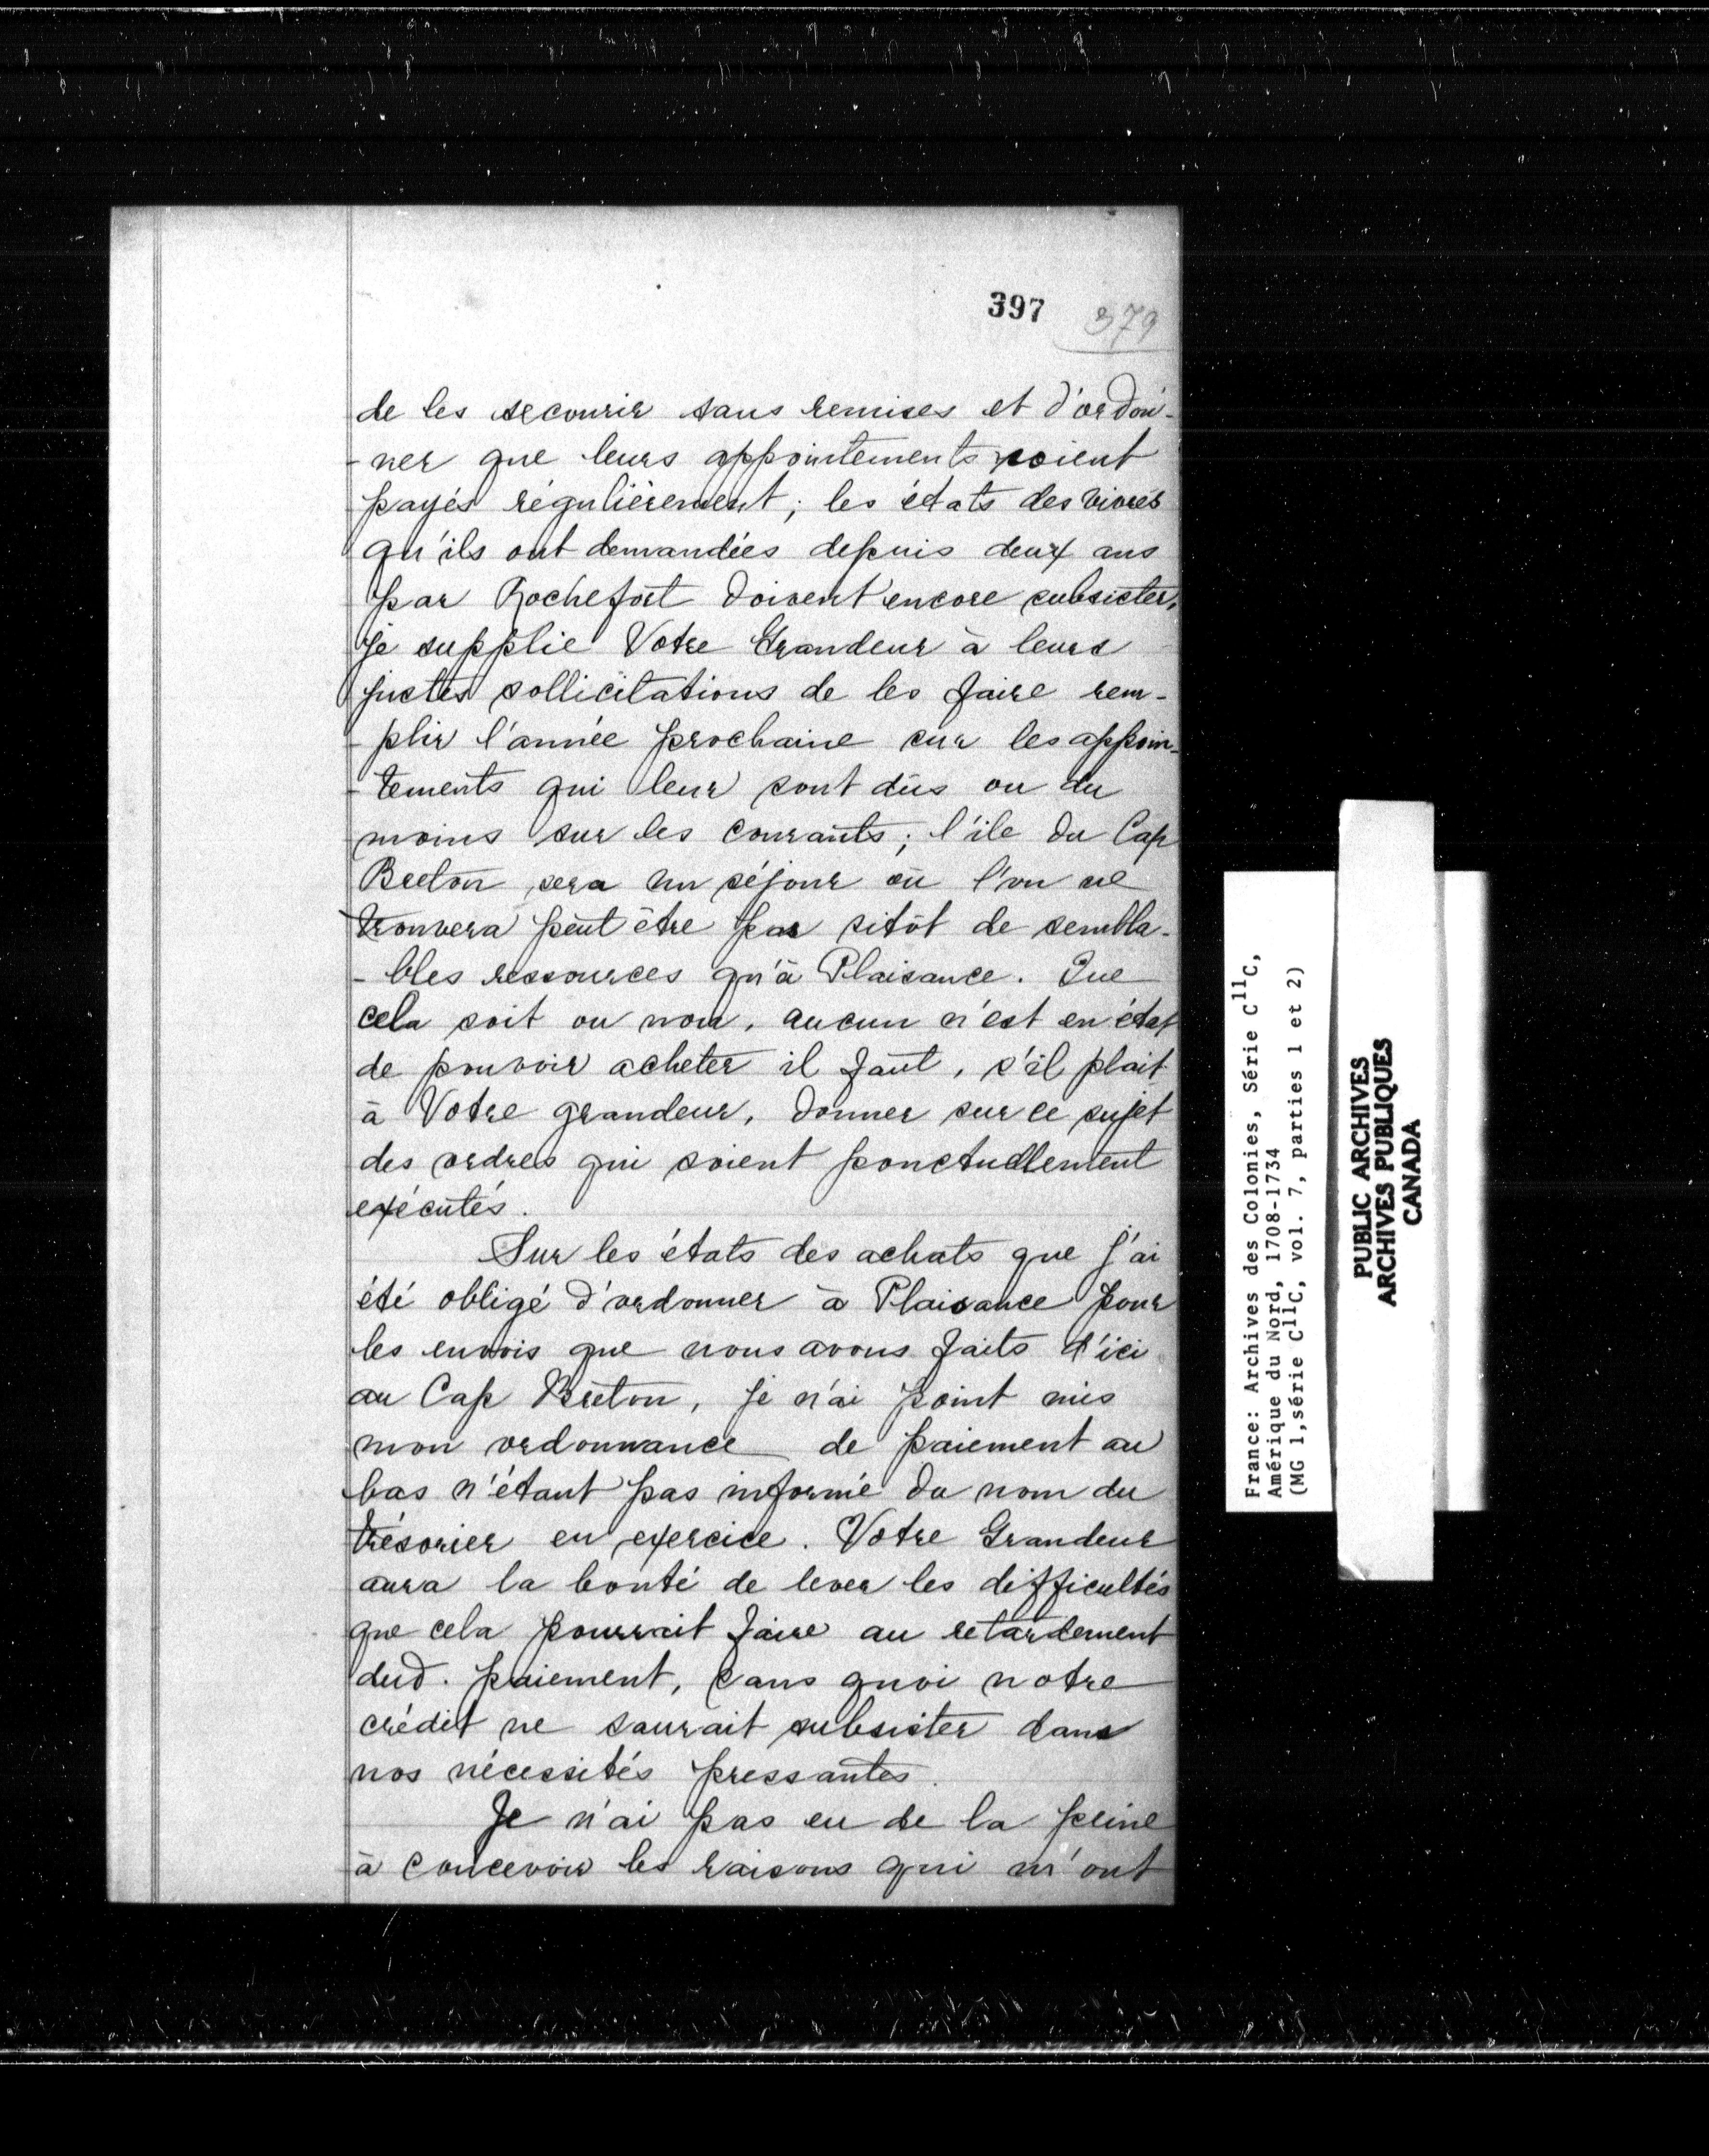 397 379
de les secourir sans remises et d'ordon-
-ner que leurs appointements soient
payés régulièrement; les états des vivres
qu'ils ont demandées depuis deux ans
par Rochefort doivent encore subsister,
je supplie Votre Grandeur à leurs
justes sollicitations de les faire rem-
-plir l'année prochaine sur les appoin-
-tements qui leur sont dûs ou du
moins sur les courants; l'île du Cap
Breton sera un séjour où l'on ne
trouvera peut être pas sitôt de sembla-
-bles ressources qu'à Plaisance. Que
cela soit ou non, aucun n'est en état
de pouvoir acheter il faut, s'il plait
à Votre grandeur, donner sur ce sujet
des ordres qui soient ponctuellement
exécutés.
Sur les états des achats que j'ai
été obligé d'ordonner à Plaisance pour
les envois que nous avons faits d'ici
au Cap Breton, je n'ai point mis
mon ordonnance de paiement au
bas n'étant pas informé du nom du
trésorier en exercice. Votre Grandeur
aura la bonté de lever les difficultés
que cela pourrait faire au retardement
dud. paiement, sans quoi notre
crédit ne saurait subsister dans
nos nécessités pressantes.
Je n'ai pas eu de la peine
à concevoir les raisons qui m'ont
France: Archives des Colonies, Série C11C,
Amérique du Nord, 1708-1734
(MG 1,série C11C, vol. 7, parties 1 et 2)
PUBLIC ARCHIVES
ARCHIVES PUBLIQUES
CANADA